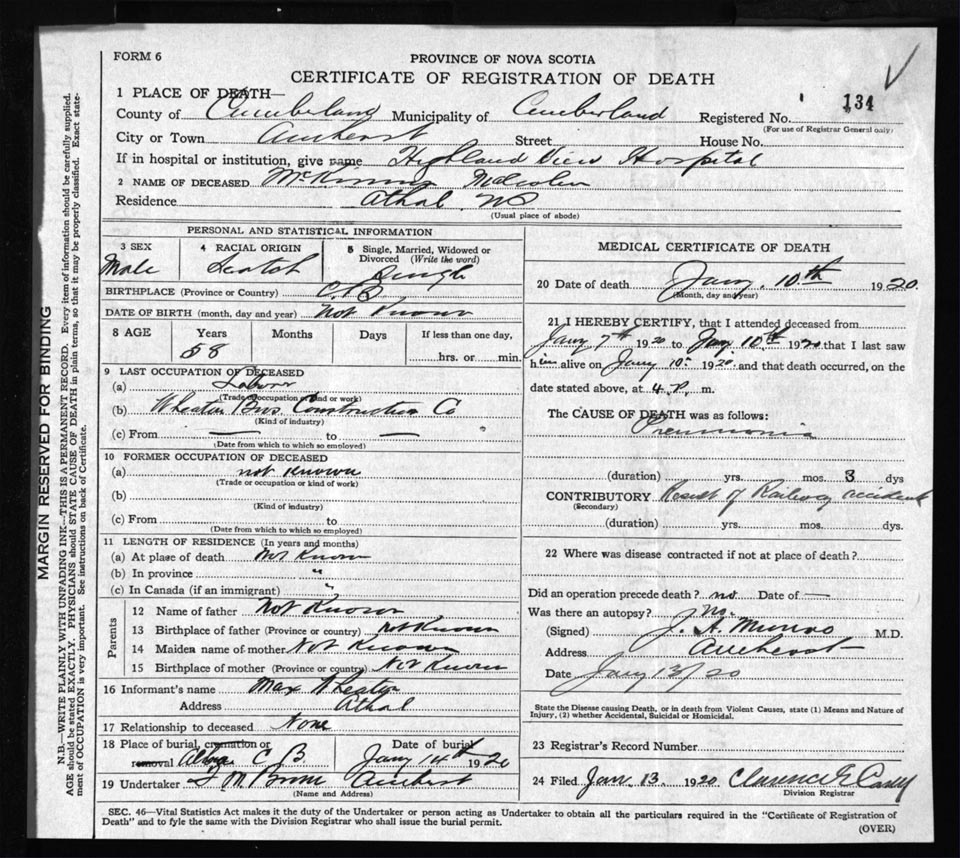 FORM 6
PROVINCE OF NOVA SCOTIA
CERTIFICATE OF REGISTRATION OF DEATH
134
1 PLACE OF DEATH—
County of Cumberland Municipality of Cumberland Registered No.
(For use of Registrar General only)
City or Town Amherst Street House No.
If in hospital or institution, give name Highland View Hospital
2 NAME OF DECEASED McKinnon Malcolm
Residence Athol NS
(Usual place of abode)
PERSONAL AND STATISTICAL INFORMATION
3 SEX 4 RACIAL ORIGIN 5 Single, Married, Widowed or Divorced (Write the word)
Male Scotch Single
BIRTHPLACE (Province or Country) C.B
DATE OF BIRTH (month, day and year) Not Known
8 AGE Years Months Days If less than one day,
58 hrs. or min.
9 LAST OCCUPATION OF DECEASED
(a) Labour
(Trade occupation or kind or work)
(b) Wheaton Bros. Construction Co
(Kind of industry)
(c) From — to —
(Date from which to which so employed)
10 FORMER OCCUPATION OF DECEASED
(a) not known
(Trade or occupation or kind of work)
(b)
(Kind of industry)
(c) From to
(Date from which to which so employed)
11 LENGTH OF RESIDENCE (In years and months)
(a) At place of death Not Known
(b) In province "
(c) In Canada (if an immigrant) "
Parents
12 Name of father Not Known
13 Birthplace of father (Province or country) Not Known
14 Maiden name of mother Not Known
15 Birthplace of mother (Province or country) Not Known
16 Informant's name Max Wheaton
Address Athol
17 Relationship to deceased None
18 Place of burial, cremation or removal C B. Date of burial Jany 14th 1920
19 Undertaker Amherst
(Name and Address)
MEDICAL CERTIFICATE OF DEATH
20 Date of death Jany. 10th 1920
(Month, day and year)
21 I HEREBY CERTIFY, that I attended deceased from
Jany 7th 1920 to Jany 10th 1920 that I last saw
him alive on Jany 10th 1920 and that death occurred, on the
date stated above, at 4 P. m.
The CAUSE OF DEATH was as follows:
Pneumonia
(duration) yrs. mos. 3 dys
CONTRIBUTORY Result of Railway accident
(Secondary)
(duration) yrs. mos. dys.
22 Where was disease contracted if not at place of death?
Did an operation precede death? no Date of —
Was there an autopsy? No.
(Signed) J. A. Munro M.D.
Address Amherst
Date Jany 12/20
State the Disease causing Death, or in death from Violent Causes, state (1) Means and Nature of
Injury, (2) whether Accidental, Suicidal or Homicidal.
23 Registrar's Record Number
24 Filed Jan. 13. 1920 Clarence E Casey
Division Registrar
SEC. 46—Vital Statistics Act makes it the duty of the Undertaker or person acting as Undertaker to obtain all the particulars required in the "Certificate of Registration of
Death" and to fyle the same with the Division Registrar who shall issue the burial permit.
(OVER)
MARGIN RESERVED FOR BINDING
N.B.—WRITE PLAINLY WITH UNFADING INK—THIS IS A PERMANENT RECORD. Every item of information should be carefully supplied.
AGE should be stated EXACTLY. PHYSICIANS should STATE CAUSE OF DEATH in plain terms, so that it may be properly classified. Exact state-
ment of OCCUPATION is very important. See instructions on back of Certificate.